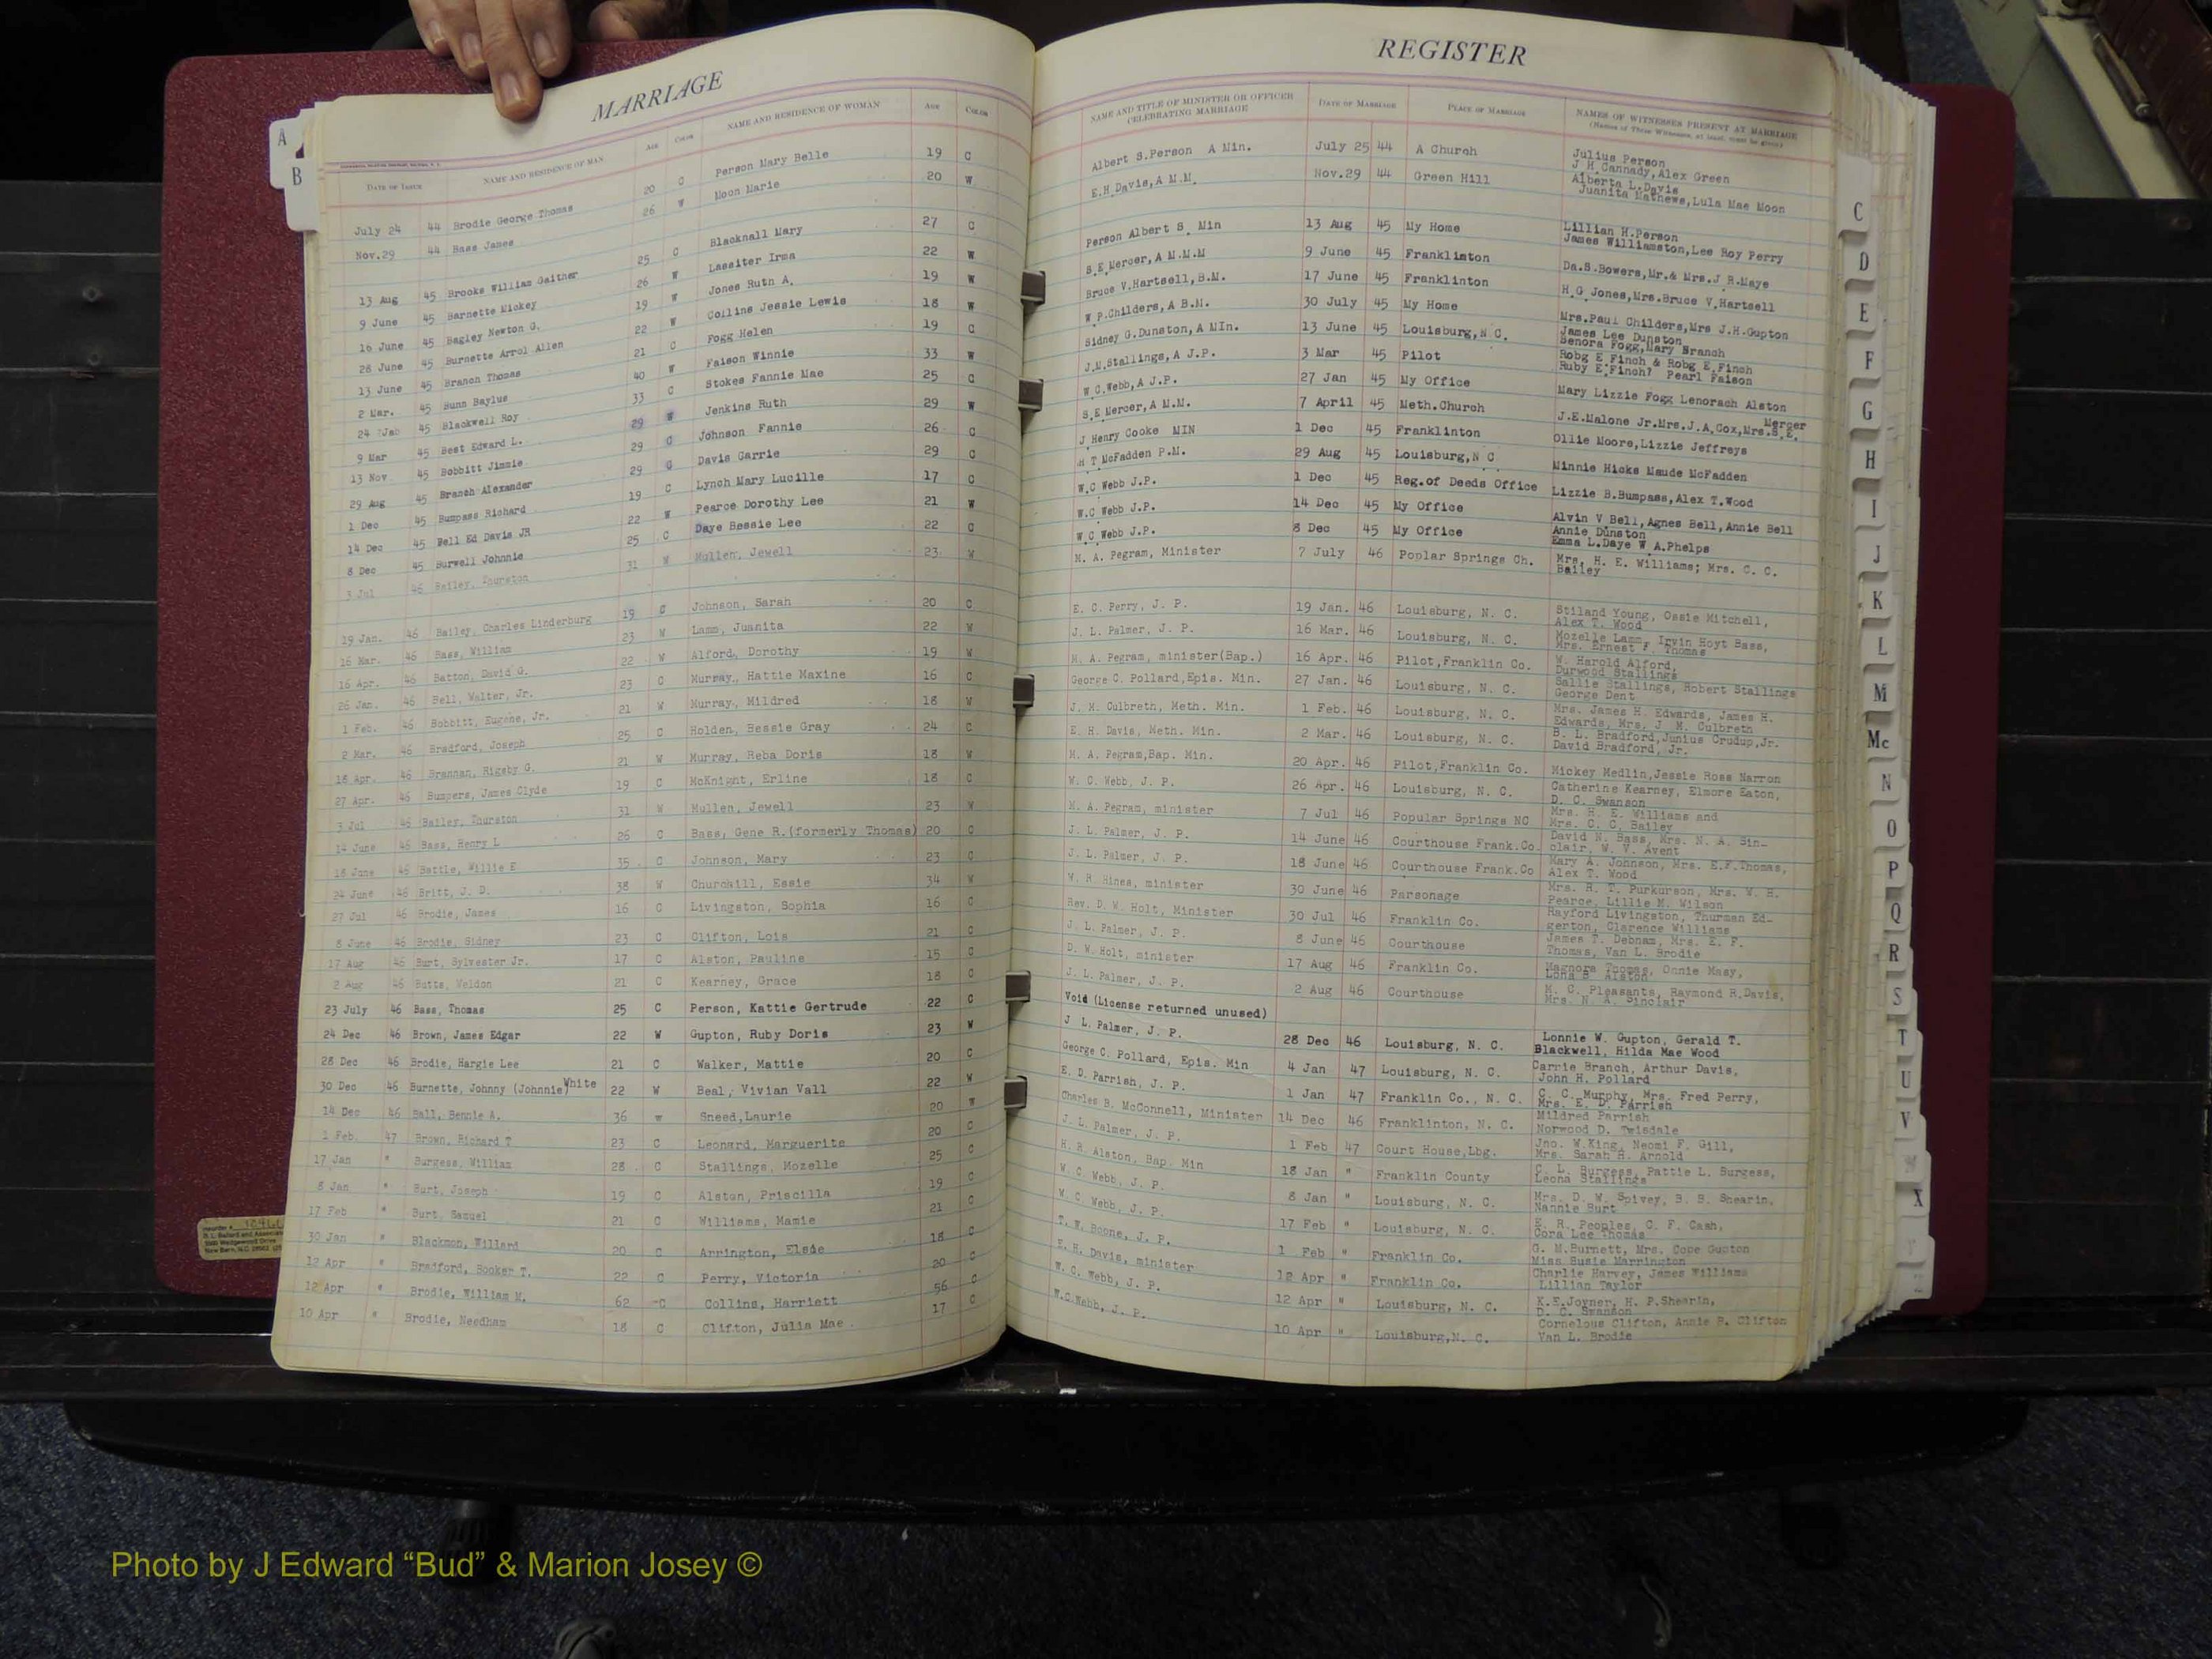 MARRIAGE
REGISTER
DATE OF ISSUE NAME AND RESIDENCE OF MAN AGE COLOR NAME AND RESIDENCE OF WOMAN AGE COLOR NAME AND TITLE OF MINISTER OR OFFICER CELEBRATING MARRIAGE DATE OF MARRIAGE PLACE OF MARRIAGE NAMES OF WITNESSES PRESENT AT MARRIAGE
July 24 44 Brodie George Thomas 20 C Person Mary Belle 19 C Albert S.Person A Min. July 25 44 A Church Julius Person J H Cannady,Alex Green
Nov.29 44 Bass James 26 W Moon Marie 20 W E.H.Davis,A M.M. Nov.29 44 Green Hill Alberta L.Davis Juanita Mathews,Lula Mae Moon
13 Aug 45 Brooks William Gaither 25 C Blacknall Mary 27 C Person Albert S. Min 13 Aug 45 My Home Lillian H.Person James Williamston,Lee Roy Perry
9 June 45 Barnette Mickey 26 W Lassiter Irma 22 W S.E.Mercer,A M.M.M 9 June 45 Franklinton Da.S.Bowers,Mr.& Mrs.J R.Maye
16 June 45 Bagley Newton G. 19 W Jones Ruth A. 19 W Bruce V.Hartsell,B.M. 17 June 45 Franklinton H.G Jones,Mrs.Bruce V.Hartsell
28 June 45 Burnette Arrol Allen 22 W Collins Jessie Lewis 18 W W P.Childers,A B.M. 30 July 45 My Home Mrs.Paul Childers,Mrs J.H.Gupton
13 June 45 Branch Thomas 21 C Fogg Helen 19 C Sidney G.Dunston,A MIn. 13 June 45 Louisburg,N C. James Lee Dunston Benora Fogg,Mary Branch
2 Mar. 45 Bunn Baylus 40 W Faison Winnie 33 W J.M.Stallings,A J.P. 3 Mar 45 Pilot Robg E Finch & Robg E Finch Ruby E Finch? Pearl Faison
24 Jab 45 Blackwell Roy 33 C Stokes Fannie Mae 25 C W C.Webb,A J.P. 27 Jan 45 My Office Mary Lizzie Fogg Lenorach Alston
9 Mar 45 Best Edward L. 29 W Jenkins Ruth 29 W S.E Mercer,A M.M. 7 April 45 Meth.Church J.E.Malone Jr.Mrs.J.A.Cox,Mrs.S.E. Mercer
13 Nov 45 Bobbitt Jimmie 29 C Johnson Fannie 26 C J Henry Cooke MIN 1 Dec 45 Franklinton Ollie Moore,Lizzie Jeffreys
29 Aug 45 Branch Alexander 29 C Davis Carrie 29 C H T McFadden P.M. 29 Aug 45 Louisburg,N C Minnie Hicks Maude McFadden
1 Dec 45 Bumpass Richard 19 C Lynch Mary Lucille 17 C W.C Webb J.P. 1 Dec 45 Reg.of Deeds Office Lizzie B.Bumpass,Alex T.Wood
14 Dec 45 Bell Ed Davis JR 22 W Pearce Dorothy Lee 21 W W.C Webb J.P. 14 Dec 45 My Office Alvin V Bell,Agnes Bell,Annie Bell
8 Dec 45 Burwell Johnnie 25 C Daye Bessie Lee 22 C W C Webb J.P. 8 Dec 45 My Office Annie Dunston Emma L.Daye W A.Phelps
3 Jul 46 Bailey, Thurston 31 W Mullen, Jewell 23 W M. A. Pegram, Minister 7 July 46 Poplar Springs Ch. Mrs. H. E. Williams; Mrs. C. C. Bailey
19 Jan. 46 Bailey, Charles Linderburg 19 C Johnson, Sarah 20 C E. C. Perry, J. P. 19 Jan. 46 Louisburg, N. C. Stiland Young, Ossie Mitchell, Alex T. Wood
16 Mar. 46 Bass, William 23 W Lamm, Juanita 22 W J. L. Palmer, J. P. 16 Mar. 46 Louisburg, N. C. Mozelle Lamm, Irvin Hoyt Bass, Mrs. Ernest F. Thomas
16 Apr. 46 Batton, David G. 22 W Alford, Dorothy 19 W M. A. Pegram, minister(Bap.) 16 Apr. 46 Pilot,Franklin Co. W. Harold Alford, Durwood Stallings
26 Jan. 46 Bell, Walter, Jr. 23 C Murray, Hattie Maxine 16 C George C. Pollard,Epis. Min. 27 Jan. 46 Louisburg, N. C. Sallie Stallings, Robert Stallings George Dent
1 Feb. 46 Bobbitt, Eugene, Jr. 21 W Murray, Mildred 18 W J. M. Culbreth, Meth. Min. 1 Feb. 46 Louisburg, N. C. Mrs. James H. Edwards, James H. Edwards, Mrs. J. M. Culbreth
2 Mar. 46 Bradford, Joseph 25 C Holden, Bessie Gray 24 C E. H. Davis, Meth. Min. 2 Mar. 46 Louisburg, N. C. B. L. Bradford,Junius Crudup,Jr. David Bradford, Jr.
18 Apr. 46 Brannan, Rigsby G. 21 W Murray, Reba Doris 18 W M. A. Pegram,Bap. Min. 20 Apr. 46 Pilot,Franklin Co. Mickey Medlin,Jessie Ross Narron
27 Apr. 46 Bumpers, James Clyde 19 C McKnight, Erline 18 C W. C. Webb, J. P. 26 Apr. 46 Louisburg, N. C. Catherine Kearney, Elmore Eaton, D. C. Swanson
3 Jul 46 Bailey, Thurston 31 W Mullen, Jewell 23 W M. A. Pegram, minister 7 Jul 46 Popular Springs NC Mrs. H. E. Williams and Mrs. C. C. Bailey
14 June 46 Bass, Henry L 26 C Bass, Gene R.(formerly Thomas) 20 C J. L. Palmer, J. P. 14 June 46 Courthouse Frank.Co. David N. Bass, Mrs. N. A. Sinclair, W. V. Avent
18 June 46 Battle, Willie E 35 C Johnson, Mary 23 C J. L. Palmer, J. P. 18 June 46 Courthouse Frank.Co Mary A. Johnson, Mrs. E.F.Thomas, Alex T. Wood
24 June 46 Britt, J. D. 38 W Churchill, Essie 34 W W. R. Hines, minister 30 June 46 Parsonage Mrs. R. T. Purkurson, Mrs. W. H. Pearce, Lillie M. Wilson
27 Jul 46 Brodie, James 16 C Livingston, Sophia 16 C Rev. D. W. Holt, Minister 30 Jul 46 Franklin Co. Rayford Livingston, Thurman Edgerton, Clarence Williams
8 June 46 Brodie, Sidney 23 C Clifton, Lois 21 C J. L. Palmer, J. P. 8 June 46 Courthouse James T. Debnam, Mrs. E. F. Thomas, Van L. Brodie
17 Aug 46 Burt, Sylvester Jr. 17 C Alston, Pauline 15 C D. W. Holt, minister 17 Aug 46 Franklin Co. Magnora Thomas, Onnie Masy, Lona B. Alston
2 Aug 46 Butts, Weldon 21 C Kearney, Grace 18 C J. L. Palmer, J. P. 2 Aug 46 Courthouse M. C. Pleasants, Raymond R.Davis, Mrs. N. A. Sinclair
23 July 46 Bass, Thomas 25 C Person, Kattie Gertrude 22 C Void (License returned unused)
24 Dec 46 Brown, James Edgar 22 W Gupton, Ruby Doris 23 W J L. Palmer, J. P. 28 Dec 46 Louisburg, N. C. Lonnie W. Gupton, Gerald T. Blackwell, Hilda Mae Wood
28 Dec 46 Brodie, Hargie Lee 21 C Walker, Mattie 20 C George C. Pollard, Epis. Min 4 Jan 47 Louisburg, N. C. Carrie Branch, Arthur Davis, John H. Pollard
30 Dec 46 Burnette, Johnny (Johnnie) White 22 W Beal, Vivian Vall 22 W E. D. Parrish, J. P. 1 Jan 47 Franklin Co., N. C. C. C. Murphy, Mrs. Fred Perry, Mrs. E. D. Parrish
14 Dec 46 Ball, Bennie A. 36 W Sneed,Laurie 20 W Charles B. McConnell, Minister 14 Dec 46 Franklinton, N. C. Mildred Parrish Norwood D. Twisdale
1 Feb. 47 Brown, Richard T 23 C Leonard, Marguerite 20 C J. L. Palmer, J. P. 1 Feb 47 Court House,Lbg. Jno. W.King, Neomi F. Gill, Mrs. Sarah H. Arnold
17 Jan " Burgess, William 28 C Stallings, Mozelle 25 C H. R. Alston, Bap. Min 18 Jan " Franklin County C. L. Burgess, Pattie L. Burgess, Leona Stallings
8 Jan " Burt, Joseph 19 C Alston, Priscilla 19 C W. C. Webb, J. P. 8 Jan " Louisburg, N. C. Mrs. D. W. Spivey, B. B. Shearin, Nannie Burt
17 Feb " Burt, Samuel 21 C Williams, Mamie 21 C W. C. Webb, J. P. 17 Feb " Louisburg, N. C. E. R. Peoples, C. F. Cash, Cora Lee Thomas
30 Jan " Blackmon, Willard 20 C Arrington, Elsie 18 C T. W. Boone, J. P. 1 Feb " Franklin Co. G. M.Burnett, Mrs. Cope Gupton Miss Susie Harrington
12 Apr " Bradford, Booker T. 22 C Perry, Victoria 20 C E. H. Davis, minister 12 Apr " Franklin Co. Charlie Harvey, James Williams Lillian Taylor
12 Apr " Brodie, William M. 62 C Collins, Harriett 56 C W. C. Webb, J. P. 12 Apr " Louisburg, N. C. K.E.Joyner, H. P.Shearin, D. C. Swanson
10 Apr " Brodie, Needham 18 C Clifton, Julia Mae 17 C W.C.Webb, J. P. 10 Apr " Louisburg,N. C. Cornelous Clifton, Annie B. Clifton Van L. Brodie
A
B
C
D
E
F
G
H
I
J
K
L
M
Mc
N
O
P
Q
R
S
T
U
V
W
X
Y
Z
Photo by J Edward “Bud” & Marion Josey ©